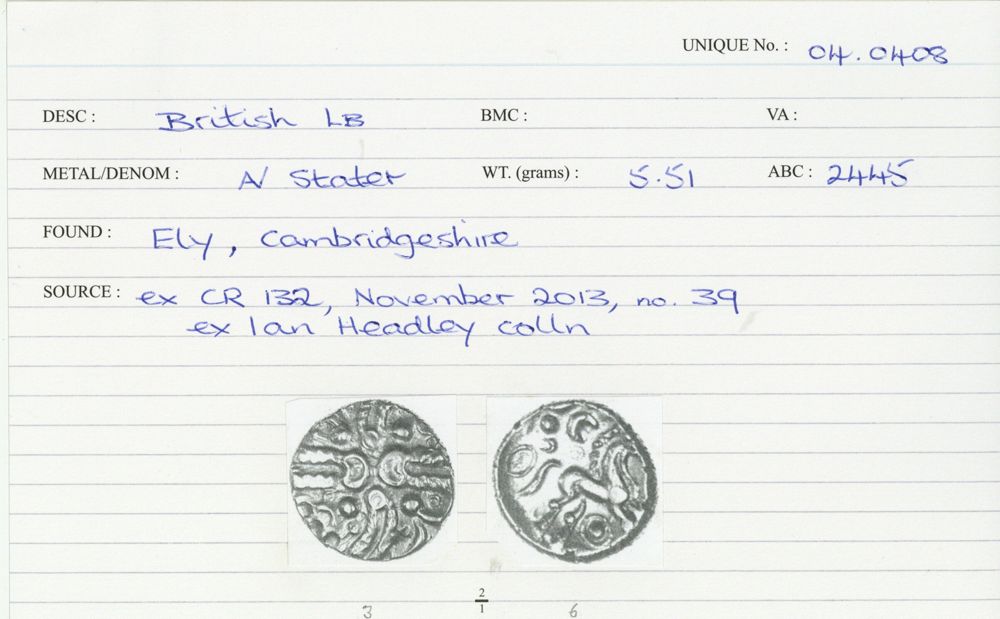 UNIQUE No. : 04.0408
DESC : British LB BMC : VA :
METAL/DENOM : A/ Stater WT. (grams) : 5.51 ABC : 2445
FOUND : Ely, Cambridgeshire
SOURCE : ex CR 132, November 2013, no. 39
ex Ian Headley colln
2
1
3 6